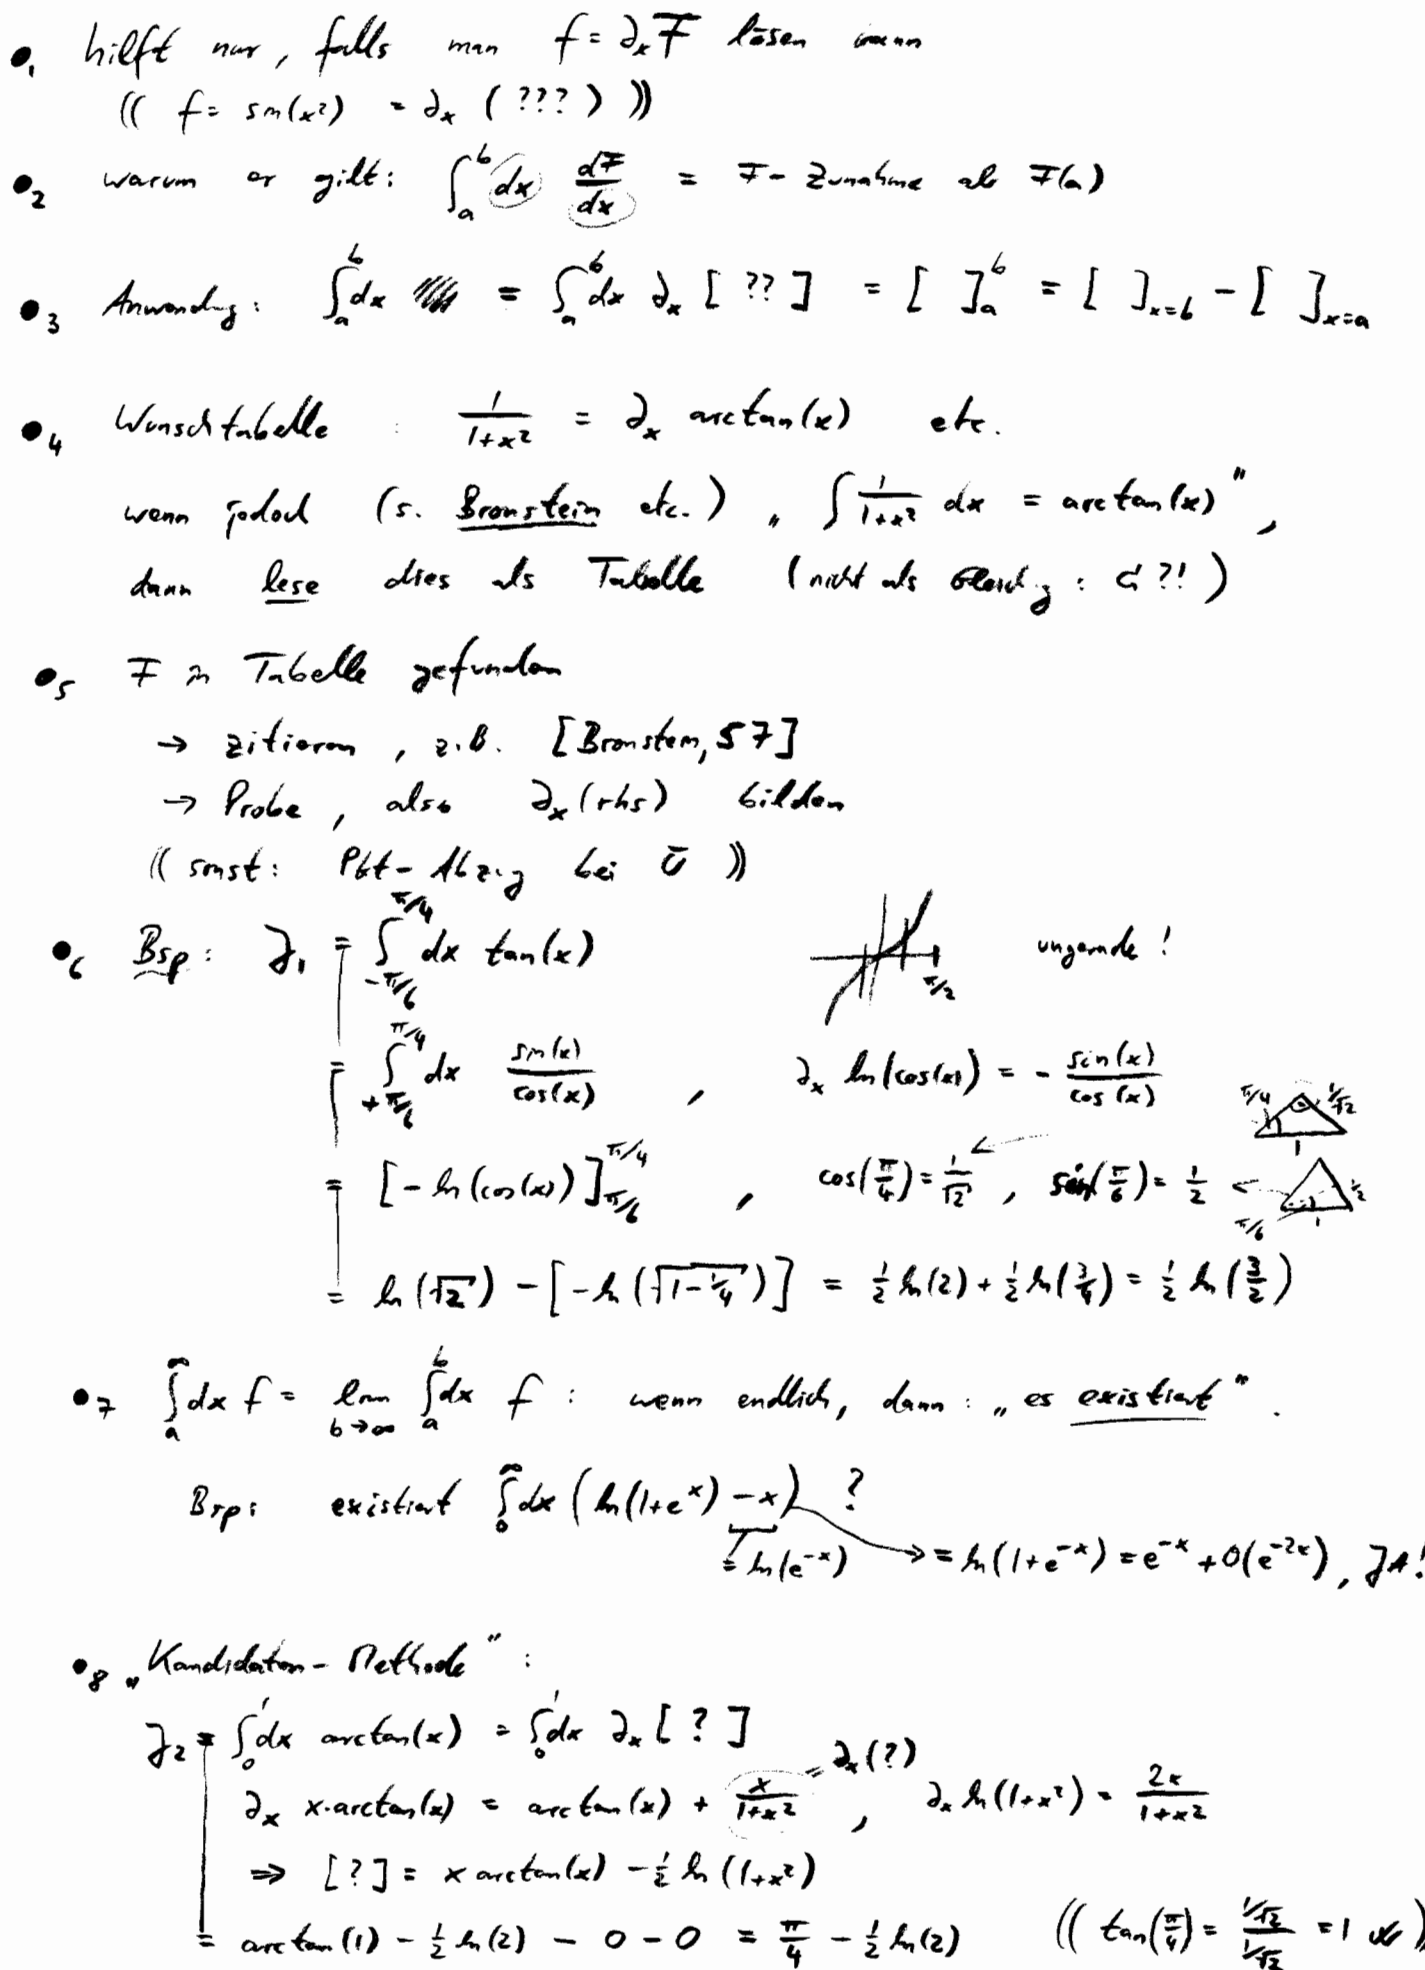 •1 hilft nur, falls man f = ∂ₓF lösen kann
(( f = sin(x²) = ∂ₓ ( ??? ) ))
•2 warum er gilt: ∫ₐᵇ dx dF/dx = F-Zunahme ab F(a)
•3 Anwendung: ∫ₐᵇ dx = ∫ₐᵇ dx ∂ₓ [ ?? ] = [ ]ₐᵇ = [ ]ₓ₌b − [ ]ₓ₌ₐ
•4 Wunschtabelle : 1/(1+x²) = ∂ₓ arctan(x) etc.
wenn jedoch (s. Bronstein etc.) „ ∫ 1/(1+x²) dx = arctan(x) ",
dann lese dies als Tabelle (nicht als Gleichg : ?!)
•5 F in Tabelle gefunden
→ zitieren, z.B. [Bronstein, 57]
→ Probe, also ∂ₓ(rhs) bilden
(( sonst: Pkt-Abzug bei Ü ))
•6 Bsp: J₁ = ∫_{-π/6}^{π/4} dx tan(x) π/2 ungerade!
= ∫_{+π/6}^{π/4} dx sin(x)/cos(x) , ∂ₓ ln(cos(x)) = − sin(x)/cos(x) π/4 1/√2 1
= [−ln(cos(x))]_{π/6}^{π/4} , cos(π/4) = 1/√2 , sin(π/6) = 1/2 π/6 1/2 1
= ln(√2) − [−ln(√(1−1/4))] = 1/2 ln(2) + 1/2 ln(3/4) = 1/2 ln(3/2)
•7 ∫ₐ^∞ dx f = lim_{b→∞} ∫ₐᵇ dx f : wenn endlich, dann: „es existiert".
Bsp: existiert ∫₀^∞ dx (ln(1+eˣ) − x) ?
= ln(e⁻ˣ) → = ln(1+e⁻ˣ) = e⁻ˣ + O(e⁻²ˣ), JA!
•8 „Kandidaten-Methode":
J₂ = ∫₀¹ dx arctan(x) = ∫₀¹ dx ∂ₓ [ ? ]
∂ₓ x·arctan(x) = arctan(x) + x/(1+x²) = ∂ₓ(?) , ∂ₓ ln(1+x²) = 2x/(1+x²)
⇒ [?] = x arctan(x) − 1/2 ln(1+x²)
= arctan(1) − 1/2 ln(2) − 0 − 0 = π/4 − 1/2 ln(2) (( tan(π/4) = (1/√2)/(1/√2) = 1 ))